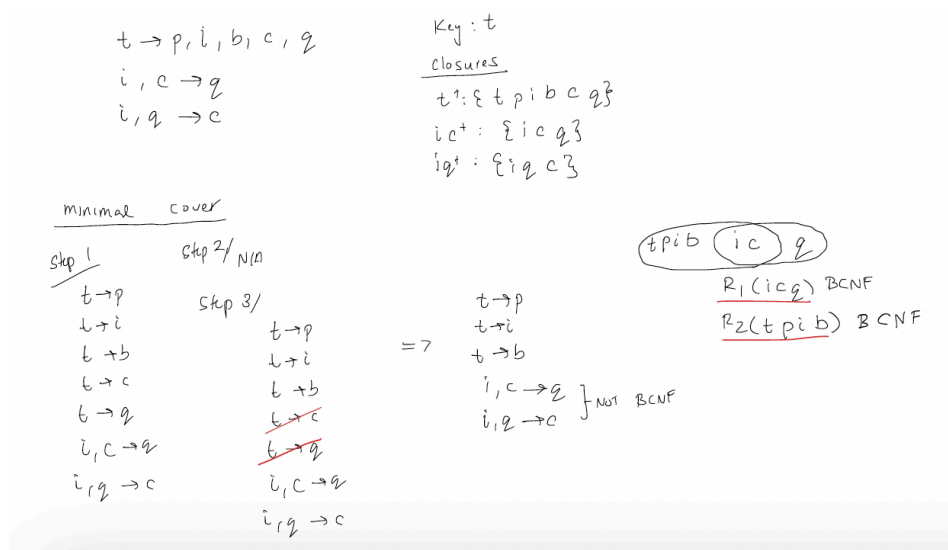 t → p, i, b, c, q
i, c → q
i, q → c
Key : t
closures
t⁺: { t p i b c q}
ic⁺ : {i c q}
iq⁺ : {i q c}
minimal cover
Step 1
t → p
t → i
t → b
t → c
t → q
i, c → q
i, q → c
Step 2/ N/A
Step 3/
t → p
t → i
t → b
t → c
t → q
i, c → q
i, q → c
=>
t → p
t → i
t → b
i, c → q
i, q → c
} NOT BCNF
t p i b i c q
R1 (i c q) BCNF
R2 (t p i b) BCNF